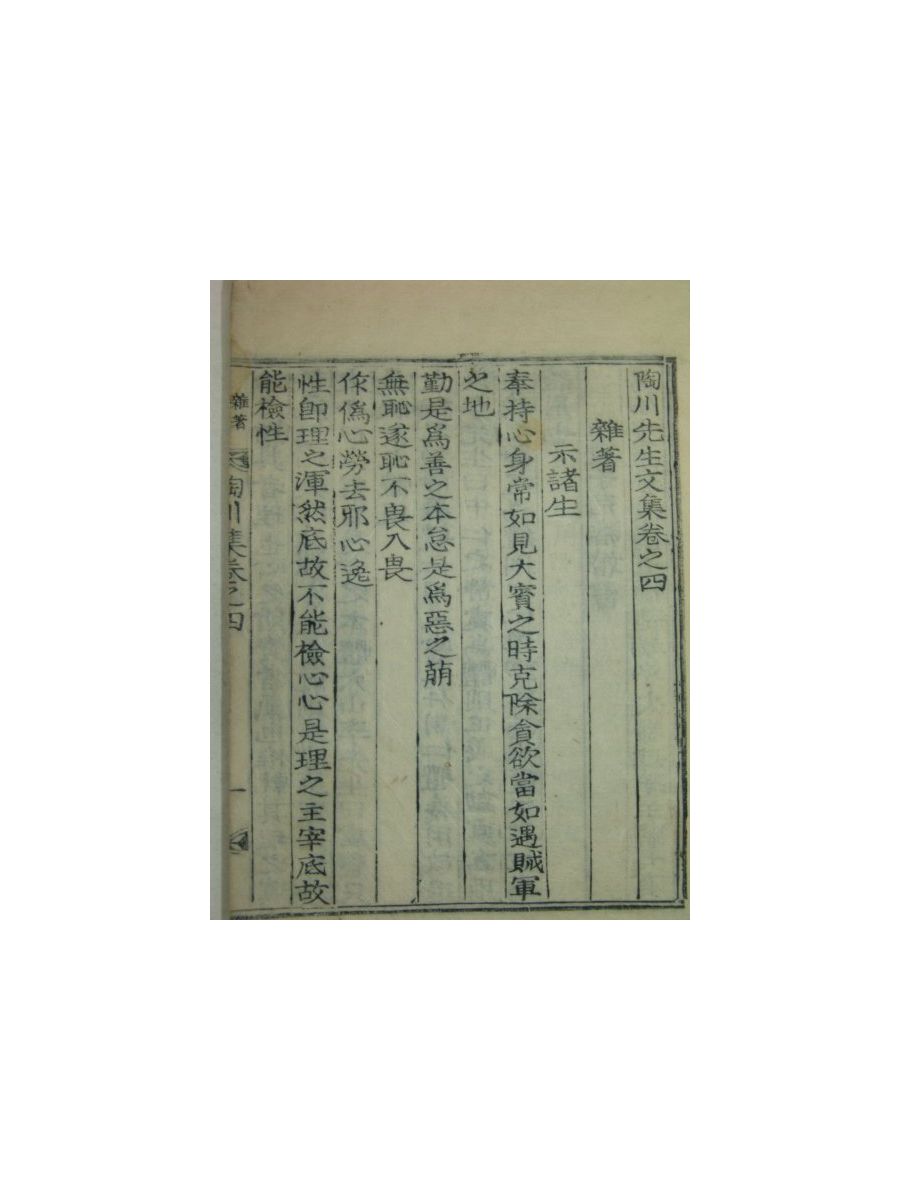 陶川先生文集卷之四
雜著
示諸生
奉持心身常如見大賓之時克除貪欲當如遇賊軍
之地
勤是爲善之本怠是爲惡之萠
無恥遂恥不畏入畏
作僞心勞去邪心逸
性卽理之渾然底故不能檢心心是理之主宰底故
能檢性
雜著 陶川集卷之四 一